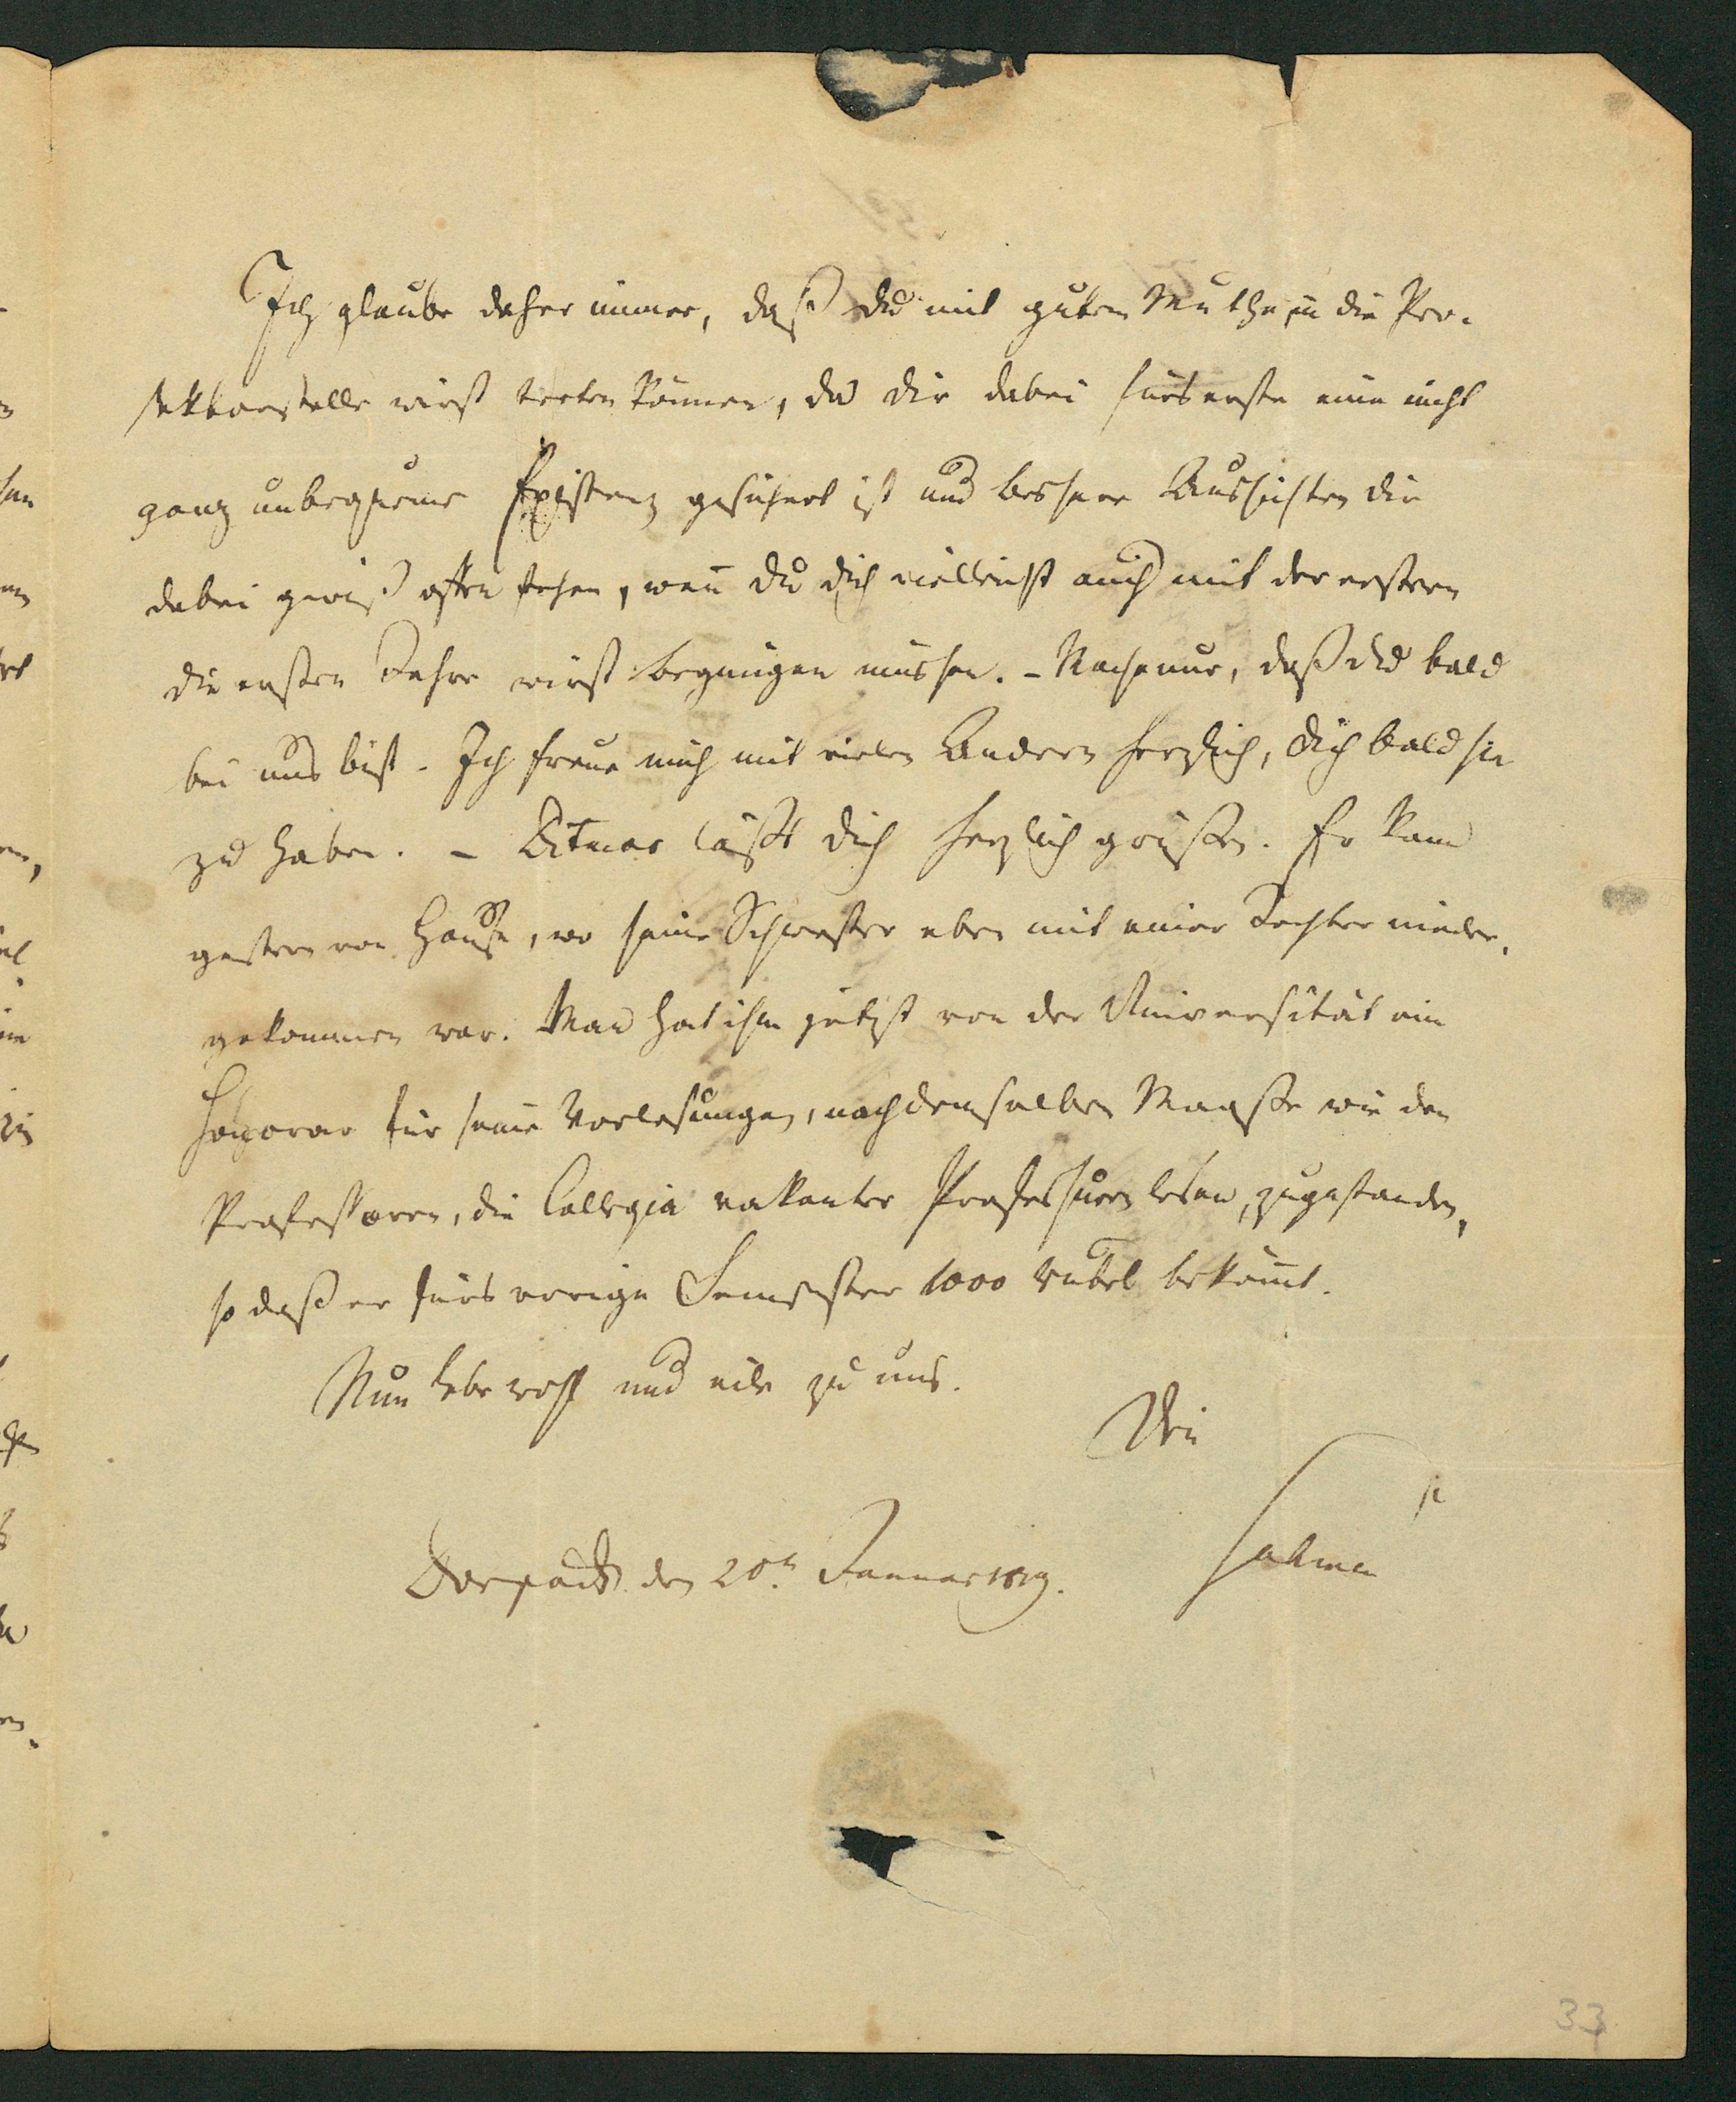 Ich glaube daher immer, daß du mit gutem Muthe in die Pro-
sektorstelle wirst treten können, da dir dabei fürs erste eine nicht
ganz unbequeme Existenz gesichert ist und bessere Aussichten dir
dabei gewiß offen stehen, wenn du dich vielleicht auch mit der erstern
die ersten Jahre wirst begnügen müssen. – Mache nur, daß du bald
bei uns bist. Ich freue mich mit vielen Andern herzlich, dich bald hie
zu haben. – Ditmar läßt dich herzlich grüßen. Er kam
gestern von Hause, wo seine Schwester eben mit einer Tochter nieder-
gekommen war. Man hat ihm jetzt von der Universität ein
Honorar für seine Vorlesungen, nach demselben Maaße wie den
Professoren, die Collegia vakanter Professuren lesen, zugestanden,
so daß er fürs vorige Semester 1000 Rubel bekömt.
Nun lebe wohl und eile zu uns.
Dein
Dorpat den 20n Januar 1819.
33